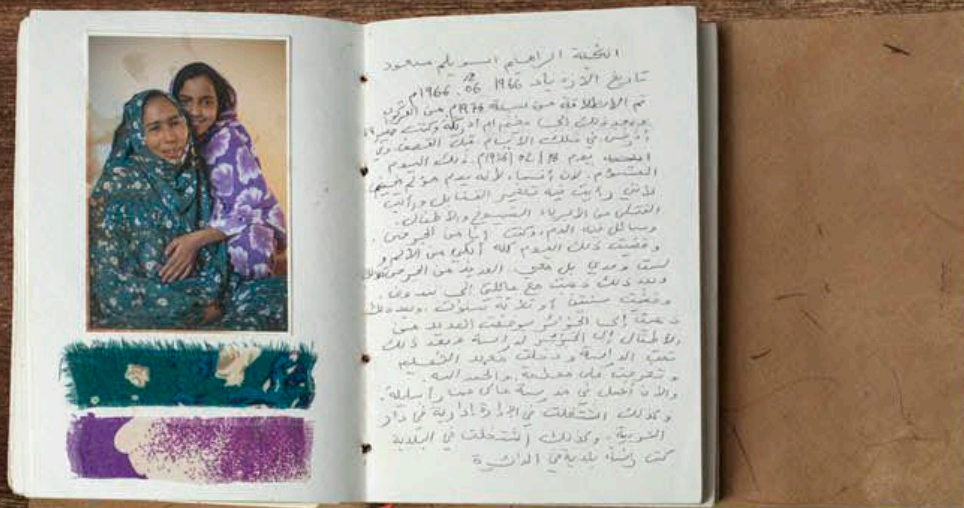 النخيلة الراهيم السويلم مسعود
تاريخ الازدياد 1966 06. 1966م
تم الانطلاقة من سنة 1976م من
وبعد ذلك إلى مخيم أم ادريكة وكنت
أدرس في تلك الأيام قبل القصف
يوم 18/02/1976م. ذلك اليوم
المشؤوم. لن أنساه لأنه يوم
لأنني رأيت فيه تفجير القنابل ورأيت
القتلى من الأبرياء الشيوخ والأطفال.
وسائل فيه الدم، وكنت أنا من الجرحى.
وقضيت ذلك اليوم كله أبكي من الألم و
لست وحدي بل معي العديد من الجرحى
وبعد ذلك ذهبت مع عائلتي إلى
وقضيت سنتين أو ثلاثة سنوات. وبعد ذلك
ذهبنا إلى الجزائر العديد من
الأطفال إلى الجزائر لدراسة وبعد ذلك
الدراسة ودخلت معهد التعليم
وتخرجت على معلمة. والحمد الله.
والآن أعمل في مدرسة
وكذلك اشتغلت في الإدارة إدارية في دار
الشورية. وكذلك اشتغلت في البلدية
كنت رئيسة بلدية في الدائرة